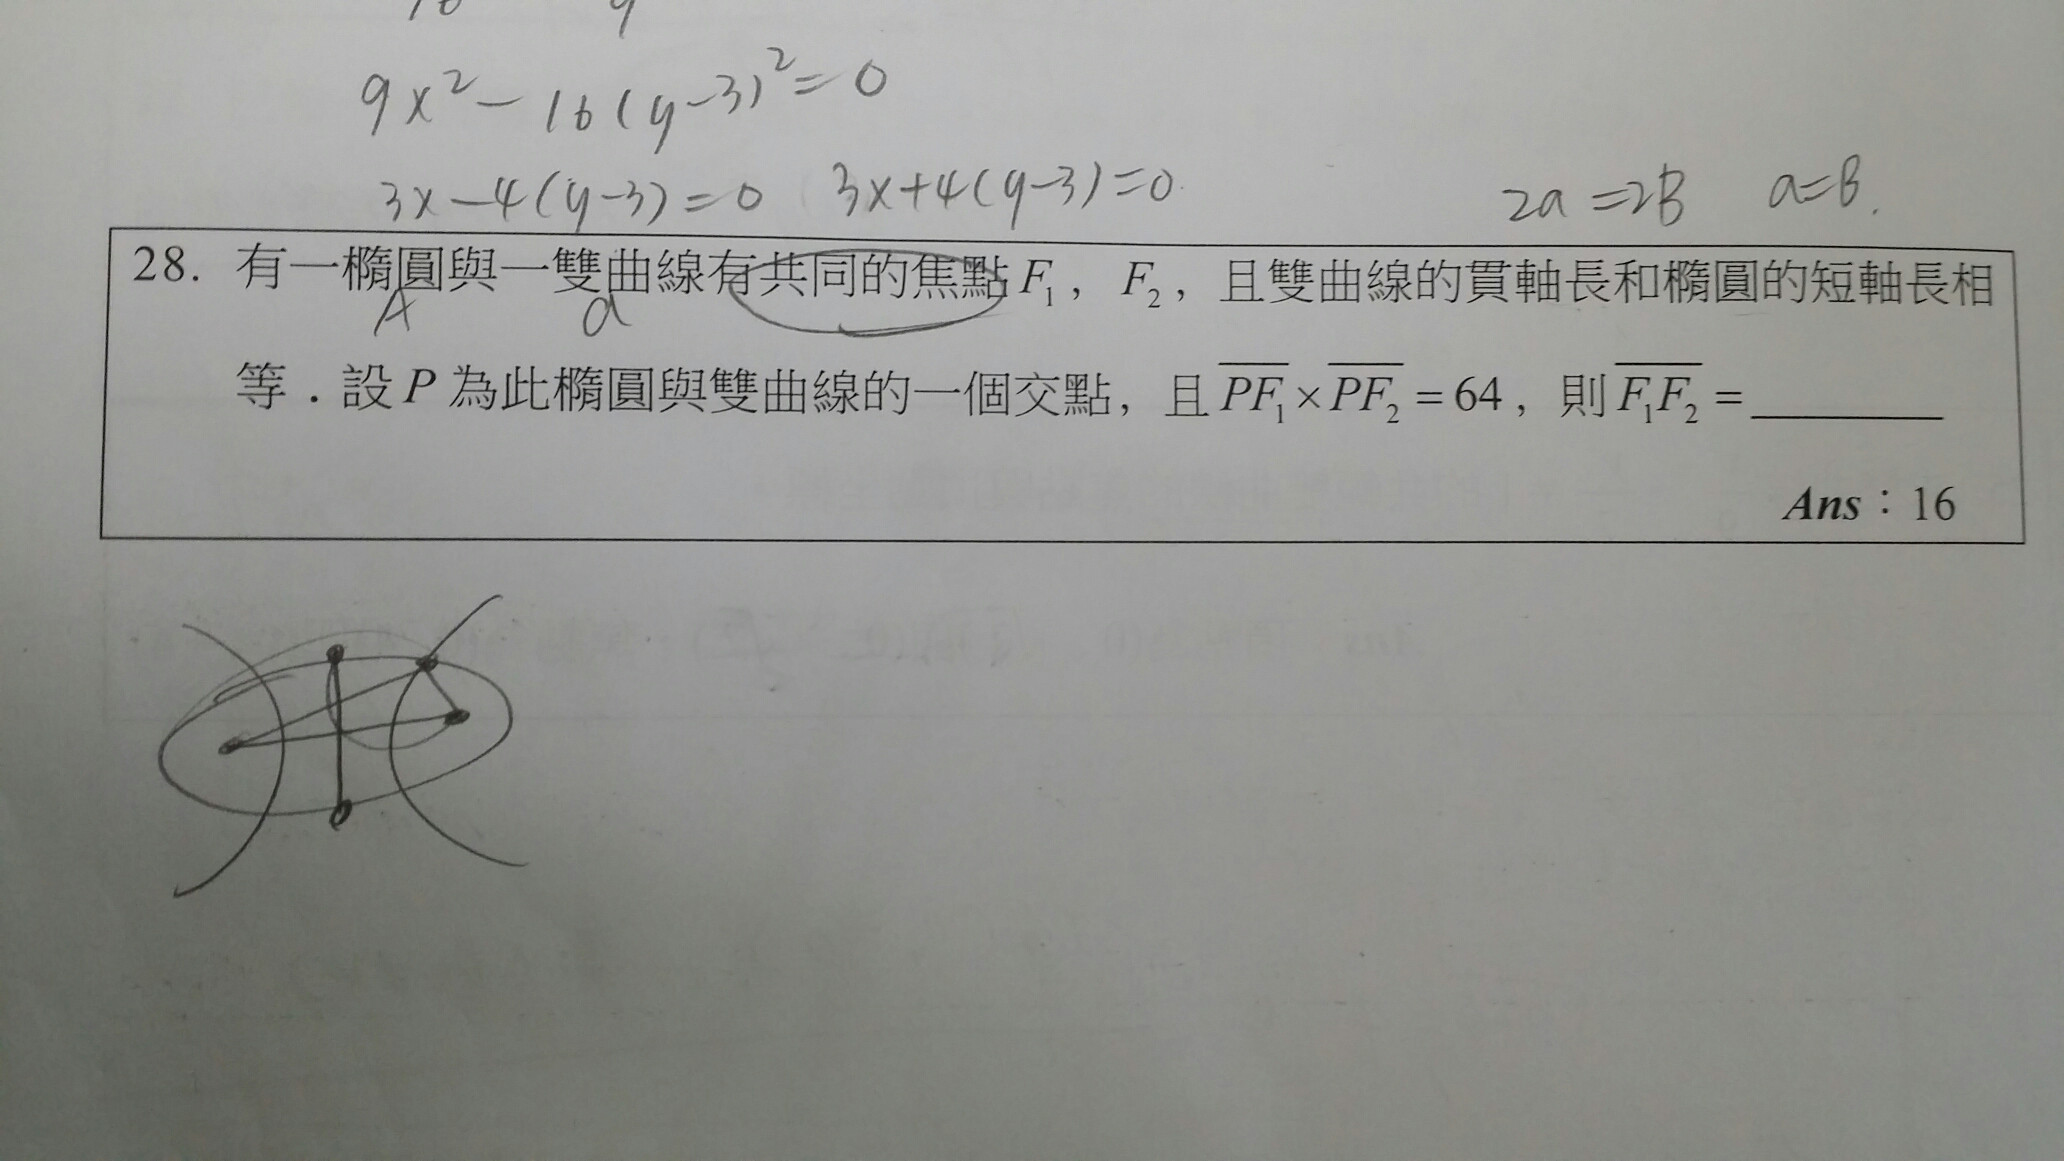 9x²-16(y-3)²=0
3x-4(y-3)=0 3x+4(y-3)=0 2a=2B a=B.
28. 有一橢圓與一雙曲線有共同的焦點 F₁，F₂，且雙曲線的貫軸長和橢圓的短軸長相
A a
等．設 P 為此橢圓與雙曲線的一個交點，且 PF₁×PF₂=64，則 F₁F₂=________
Ans：16